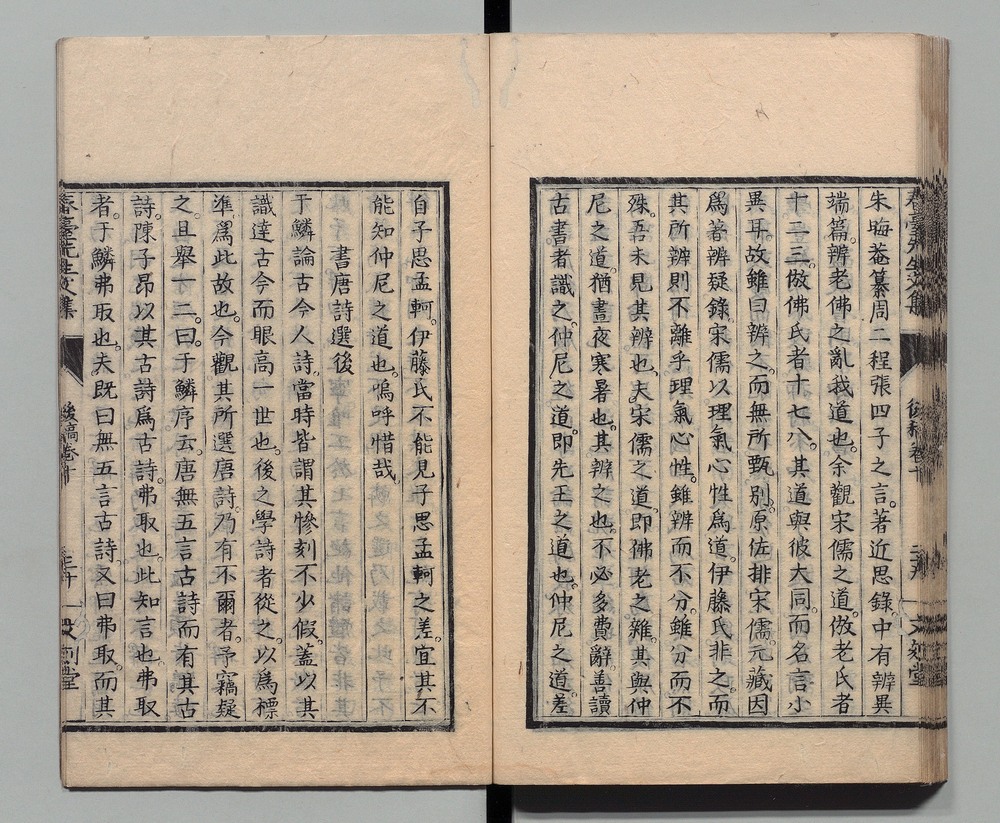 朱晦菴纂周二程張四子之言。著近思錄。中有辨異
端篇。辨老佛之亂我道也。余觀宋儒之道。倣老氏者
十二三。倣佛氏者十七八。其道與彼大同。而名言小
異耳。故雖曰辨之。而無所甄別。原佐排宋儒。元藏因
爲著辨疑錄。宋儒以理氣心性爲道。伊藤氏非之。而
其所辨則不離乎理氣心性。雖辨而不分。雖分而不
殊。吾未見其辨也。夫宋儒之道。即佛老之雜。其與仲
尼之道。猶晝夜寒暑也。其辨之也。不必多費辭。善讀
古書者識之。仲尼之道。即先王之道也。仲尼之道。差
自子思孟軻。伊藤氏不能見子思孟軻之差。宜其不
能知仲尼之道也。嗚呼惜哉。
書唐詩選後
于鱗論古今人詩。當時皆謂其慘刻不少假。蓋以其
識達古今而眼高一世也。後之學詩者從之。以爲標
準爲此故也。今觀其所選唐詩。乃有不爾者。予竊疑
之。且舉一二。曰。于鱗序云。唐無五言古詩而有其古
詩。陳子昂以其古詩爲古詩。弗取也。此知言也。弗取
者于鱗弗取也。夫既曰無五言古詩。又曰弗取。而其
春臺先生文集
後稿卷十